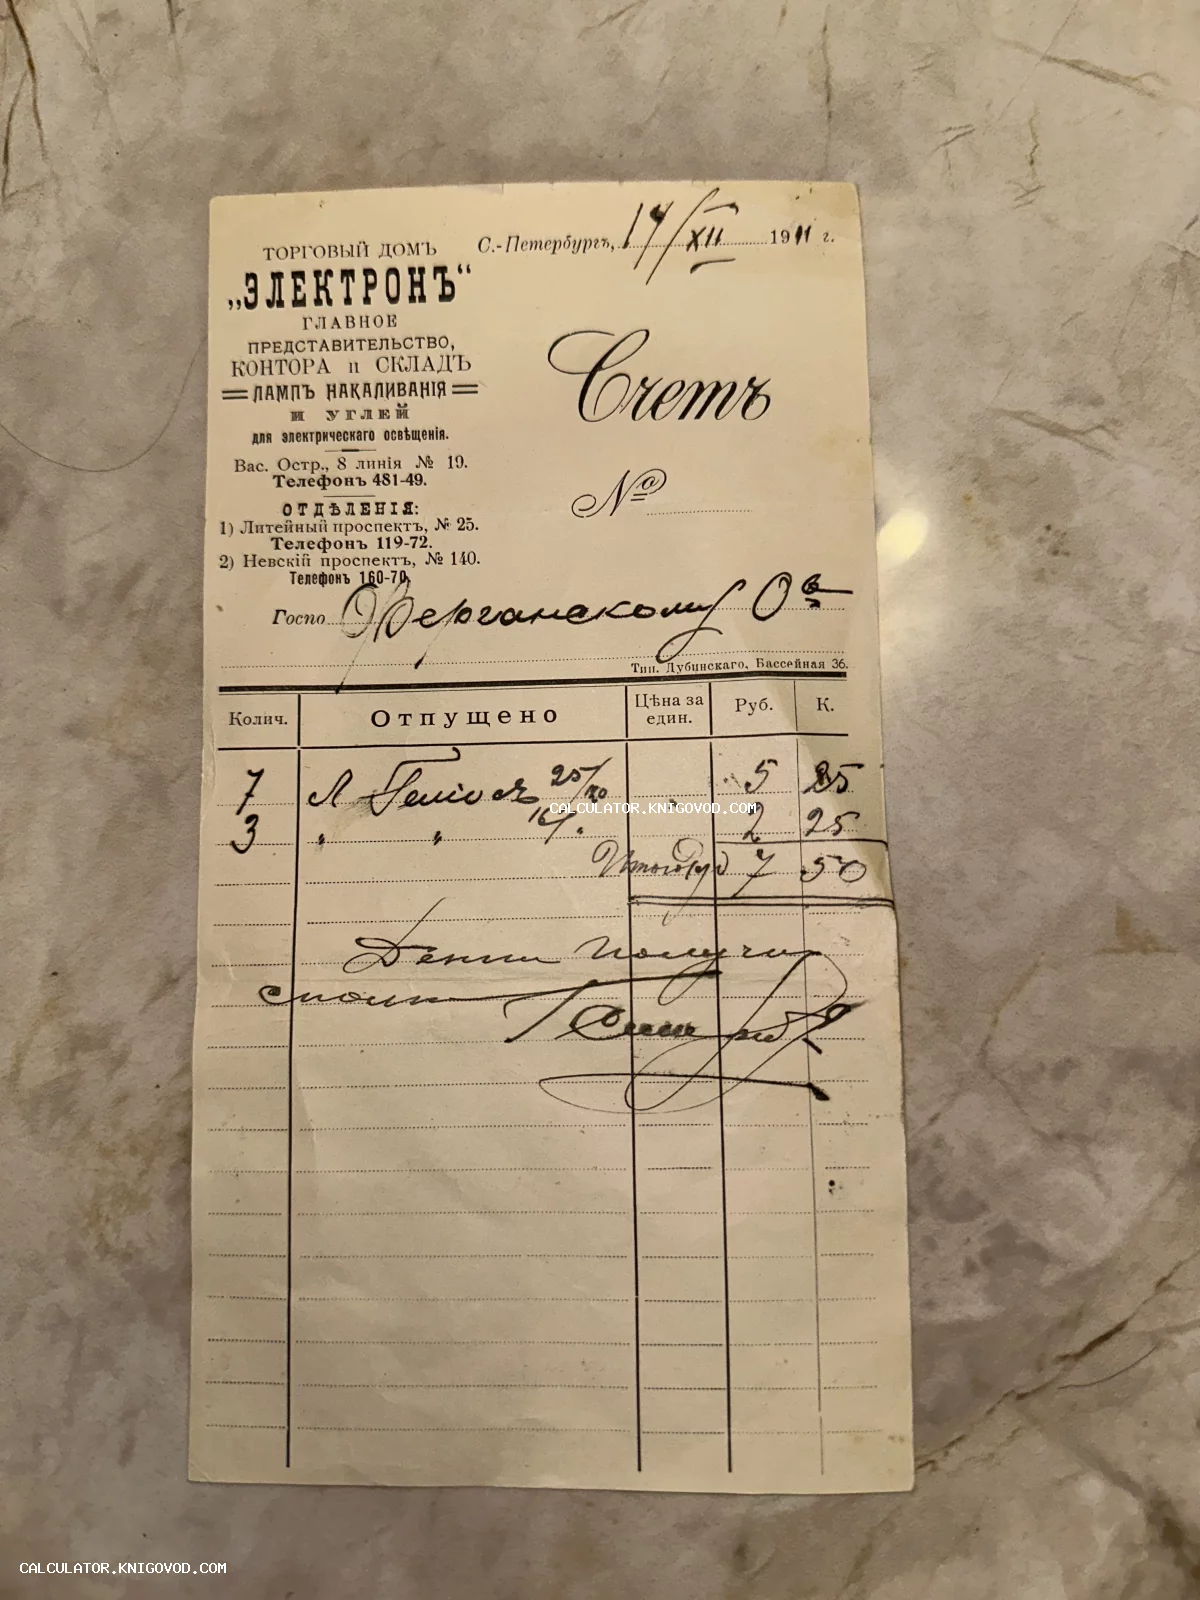 С.-Петербургъ, 14/XII 1911 г.
ТОРГОВЫЙ ДОМЪ
„ЭЛЕКТРОНЪ“
ГЛАВНОЕ
ПРЕДСТАВИТЕЛЬСТВО,
КОНТОРА и СКЛАДЪ
ЛАМПЪ НАКАЛИВАНІЯ
И УГЛЕЙ
для электрическаго освѣщенія.
Вас. Остр., 8 линія № 19.
Телефонъ 481-49.
ОТДѢЛЕНІЯ:
1) Литейный проспектъ, № 25.
Телефонъ 119-72.
2) Невскій проспектъ, № 140.
Телефонъ 160-70.
Счетъ
№
Госпо Ферганскому О-в
Тип. Дубинскаго, Бассейная 36.
Колич. Отпущено Цѣна за един. Руб. К.
7 Л Геліосъ 25/ 5 25
3 " " 16/ 2 25
CALCULATOR.KNIGOVOD.COM
Итого руб 7 50
Деньги получи
сполна
CALCULATOR.KNIGOVOD.COM